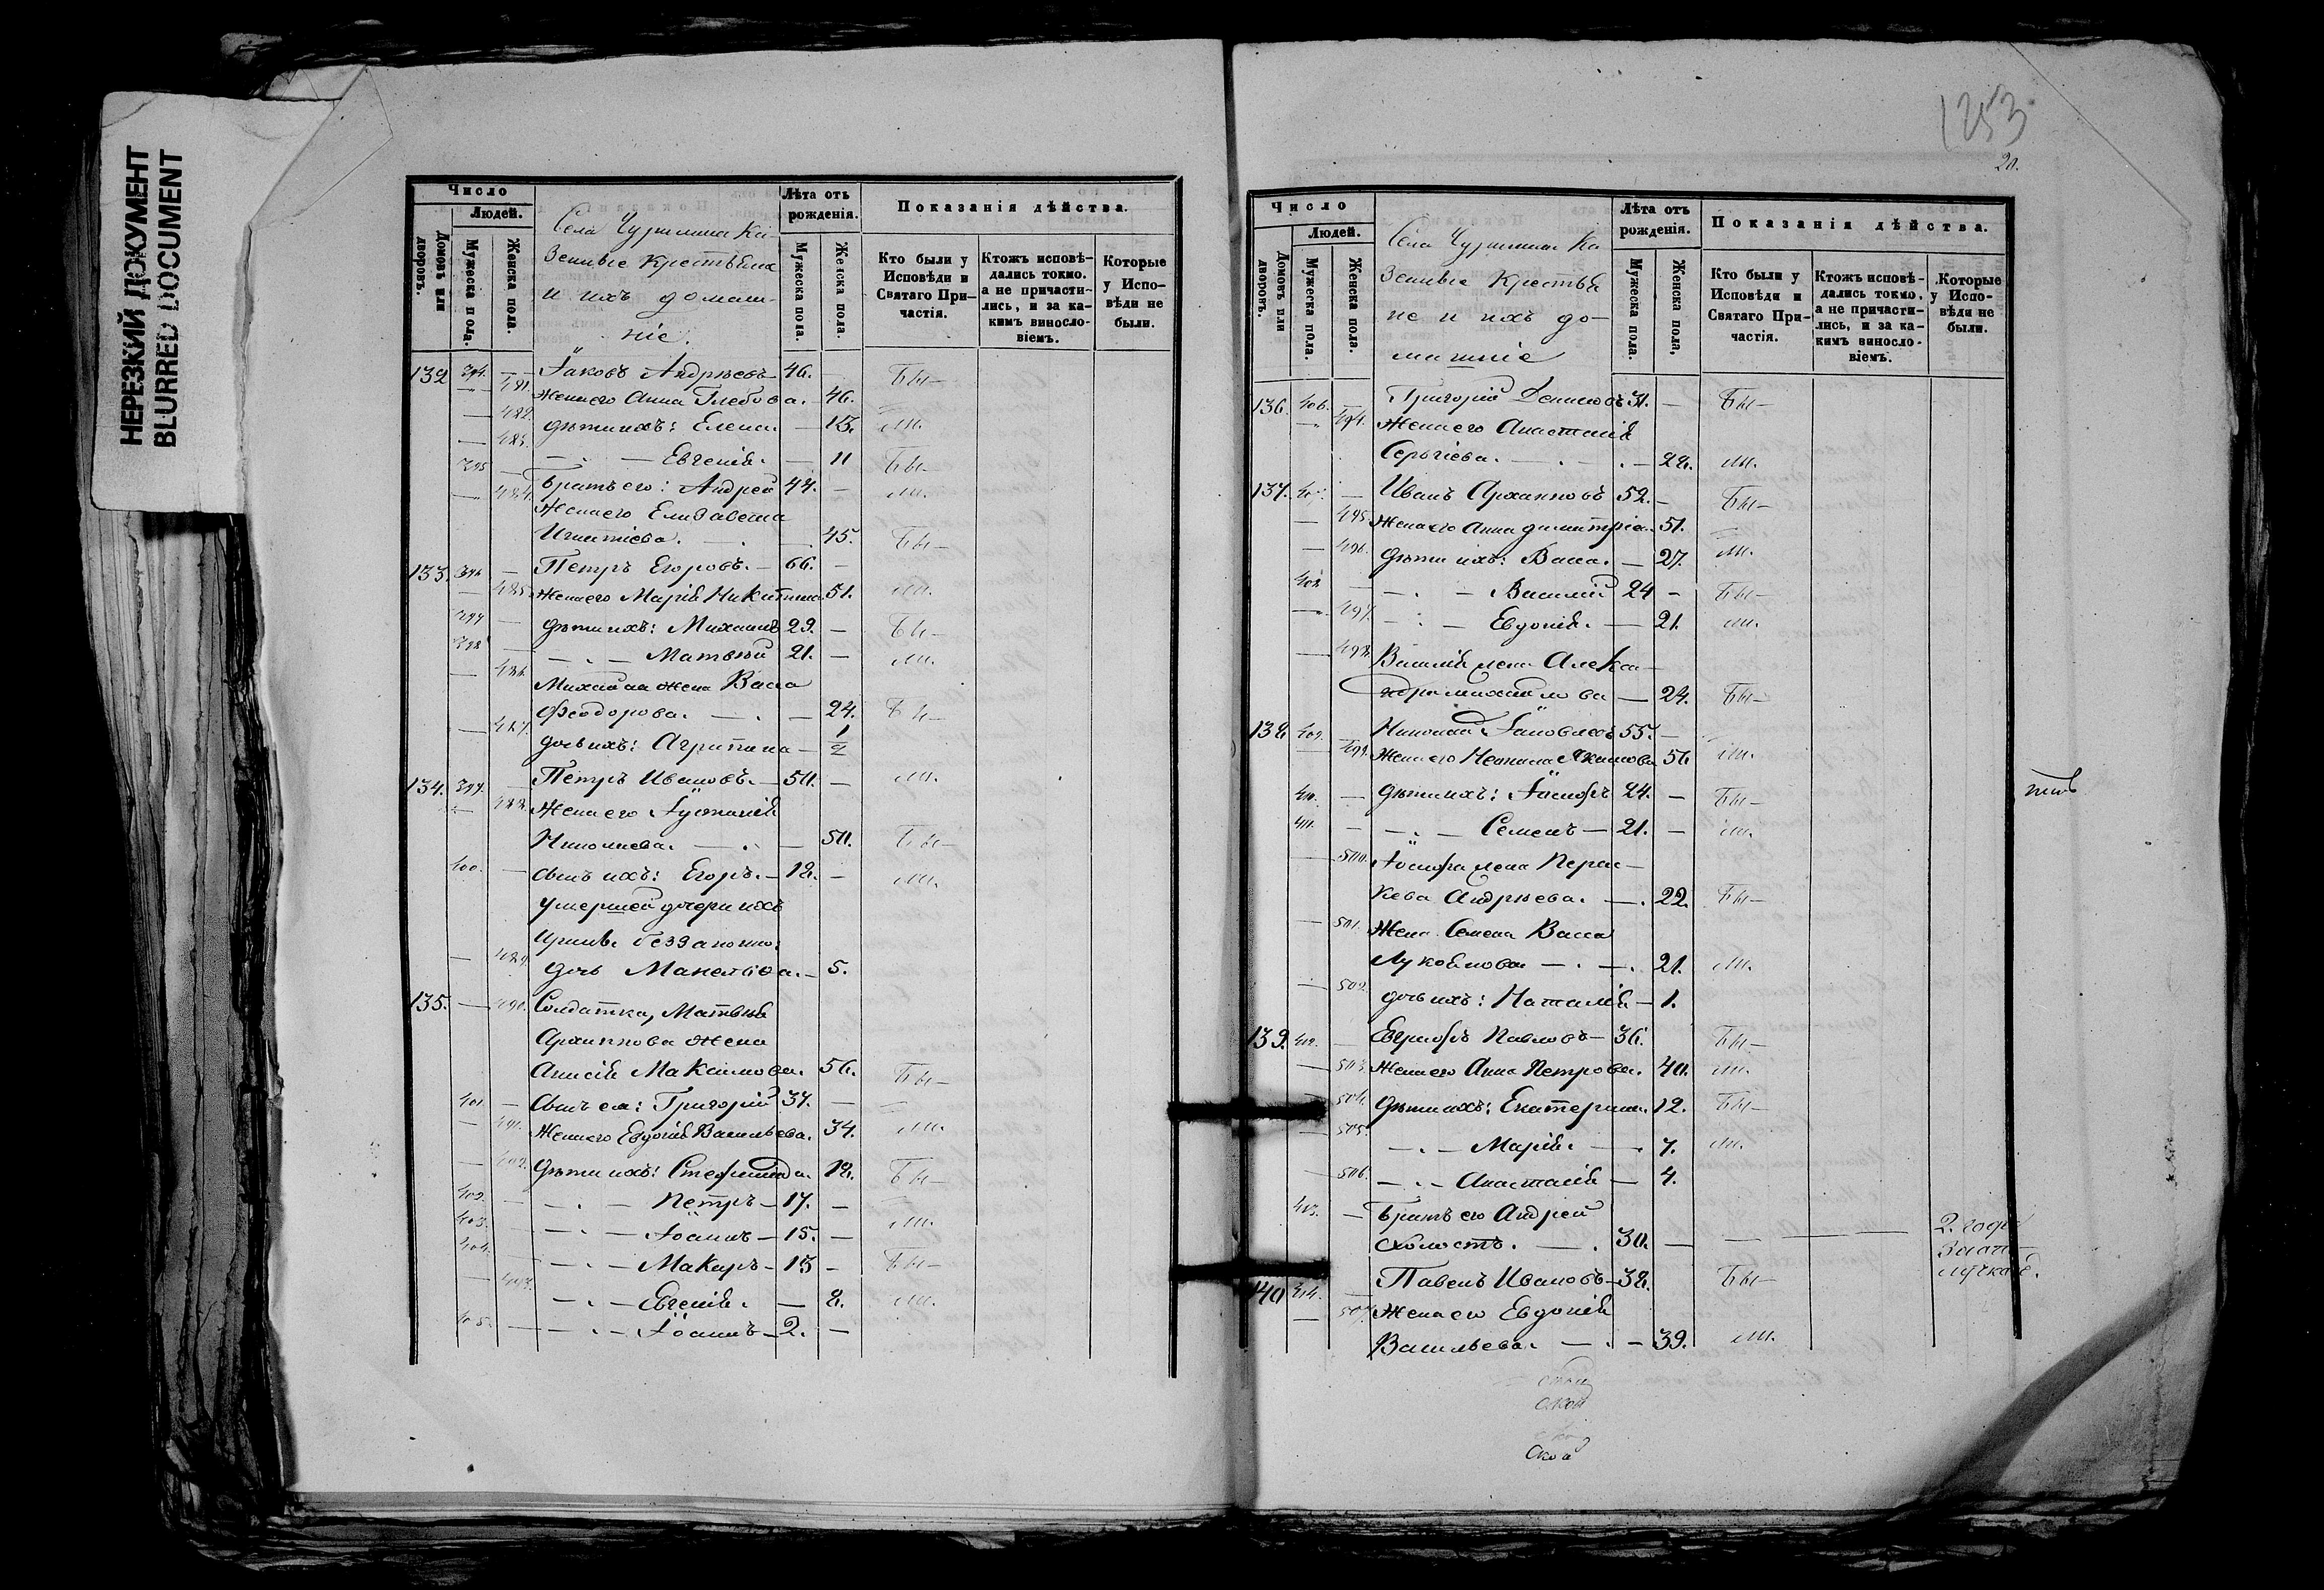 НЕРЕЗКИЙ ДОКУМЕНТ
BLURRED DOCUMENT
Число
Людей.
Домовъ или дворовъ.
Мужеска пола.
Женска пола.
Села Ка-
зенные Крестьяна
и ихъ домаш-
ніе.
Лѣта отъ рожденія.
Мужеска пола.
Женска пола.
Показанія дѣйства.
Кто были у Исповѣди и Святаго При-частія.
Ктожъ исповѣ-дались токмо. а не причасти-лись, и за ка-кимъ винослo-віемъ.
Которые у Испо-вѣди не были.
132 394. — Іаковъ Андрѣевъ 46. — Бы-
— 481. Жена его Анна Глебова. 46.
— 482. дѣти ихъ: Елена — 13. ли.
— 483. — Евгенія. — 11 Бы-
395 — братъ его: Андрей 44. — ли.
— 484. Жена его Елизавета
Игнатіева. — 45. Бы-
133. 396 — Петръ Егоровъ. 66. —
— 485. Жена его Марія Никитина 51. ли.
397 — дѣти ихъ: Михаилъ 29. — Бы-
398 — Матвѣй 21. — ли.
— 486. Михаила жена Васса
Феодорова. — 24. Бы-
— 487. дочь ихъ: Агрипина — 1/2
134. 399. — Петръ Ивановъ. 50. — ли.
— 488. Жена его Іустинія
Николаева. — 50. Бы-
400. — сынъ ихъ: Егоръ. 18. — ли.
умершей дочери ихъ
беззаконно:
— 489. дочь — 5.
135. — 490. Солдатка, Матвѣя
Архиппова жена
Анисія Максимова. 56. Бы-
401 — сынъ ея: Григорій 37. —
— 491. Жена его Евдокія Васильева. 34. ли.
— 492. дѣти ихъ: Стефанида. 18. Бы-
402. — Петръ — 17. —
403. — Іоаннъ — 15. — ли.
404. — Макаръ — 13 — Бы-
— 493. — Евгенія. — 8. ли.
405. — Іоаннъ — 2. —
1253
20.
Число
Людей.
Домовъ или дворовъ.
Мужеска пола.
Женска пола.
Села Ка
зенные Крестья
не и ихъ до-
машніе
Лѣта отъ рожденія.
Мужеска пола.
Женска пола,
Показанія дѣйства.
Кто были у Исповѣди и Святаго При-частія.
Ктожъ исповѣ-дались токмо, а не причасти-лись, и за ка-кимъ винослo-віемъ.
Которые у Испо-вѣди не были.
136. 406. — Григорій Денисовъ 31. — Бы-
— 494. Жена его Анастасія
Сергіева. — 22. ли.
137. 407. — Иванъ Архипповъ 52. — Бы-
— 495. Жена его Анна Димитріева. 51.
— 496. дѣти ихъ: Васса. — 27. ли.
408 — Василій 24 — Бы-
— 497. — Евдокія. — 21. ли.
— 498. Василія жена Алекса-
ндра Михайлова — 24. Бы-
138. 409. — Николай Іаковлевъ 55. —
— 499. Жена его Неонила Акимова 56 ли.
410. — дѣти ихъ: Іосифъ 24. — Бы-
411. — Семенъ — 21. — ли.
— 500. Іосифа жена Перас-
кева Андрѣева. — 22. Бы-
— 501. Жена Семена Васса
— 21. ли.
— 502. дочь ихъ: Наталія — 1.
139. 412. — Павловъ — 36. Бы-
— 503. Жена его Анна Петрова. 40. ли.
— 504. дѣти ихъ: Екатерина. 12. Бы-
— 505. — Марія. — 7. ли.
— 506. — Анастасія — 4.
413. — братъ его Андрей
холостъ. — 30. — 2. года
140 414. — Павелъ Ивановъ — 38. Бы-
— 507. Жена его Евдокія
Васильева. — 39. ли.